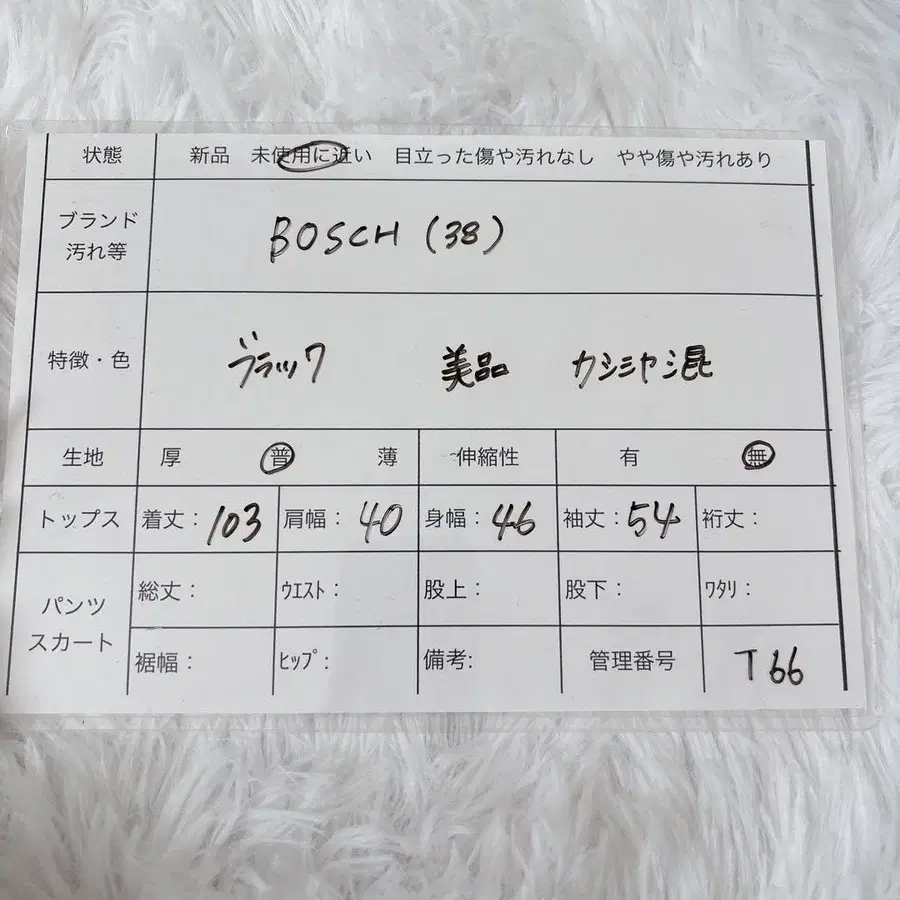 状態 新品 未使用に近い 目立った傷や汚れなし やや傷や汚れあり
ブランド
汚れ等 BOSCH (38)
特徴・色 ブラック 美品 カシミヤ混
生地 厚 普 薄 伸縮性 有 無
トップス 着丈：103 肩幅：40 身幅：46 袖丈：54 裄丈：
パンツ
スカート
総丈： ｳｴｽﾄ： 股上： 股下： ﾜﾀﾘ：
裾幅： ﾋｯﾌﾟ： 備考: 管理番号 T66